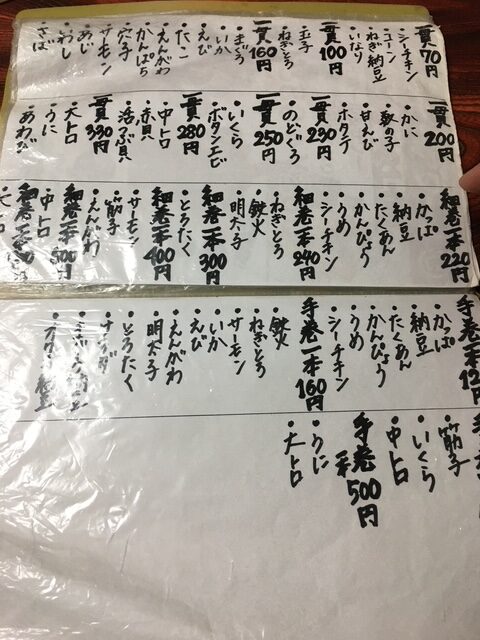 一貫70円
・シーチキン
・コーン
・ねぎ納豆
・いなり
一貫100円
・玉子
・ねぎとろ
一貫160円
・まぐろ
・いか
・えび
・たこ
・えんがわ
・かんぱち
・穴子
・サーモン
・あじ
・いわし
・さば
一貫200円
・かに
・数の子
・甘えび
・ホタテ
一貫230円
・のどぐろ
一貫250円
・いくら
・ボタンエビ
一貫280円
・中トロ
・赤貝
・活つぶ貝
一貫330円
・大トロ
・うに
・あわび
細巻一本220円
・かっぱ
・納豆
・たくあん
・かんぴょう
・うめ
・シーチキン
細巻一本240円
・ねぎとろ
・鉄火
・明太子
細巻一本300円
・とろたく
細巻一本400円
・サーモン
・筋子
・えんがわ
細巻一本500円
・中トロ
細巻一本
・大トロ
手巻一本12
・かっぱ
・納豆
・たくあん
・かんぴょう
・うめ
・シーチキン
手巻一本160円
・鉄火
・ねぎとろ
・サーモン
・いか
・えび
・えんがわ
・明太子
・とろたく
・サラダ
手
・筋子
・いくら
・中トロ
手巻一本500円
・うに
・大トロ